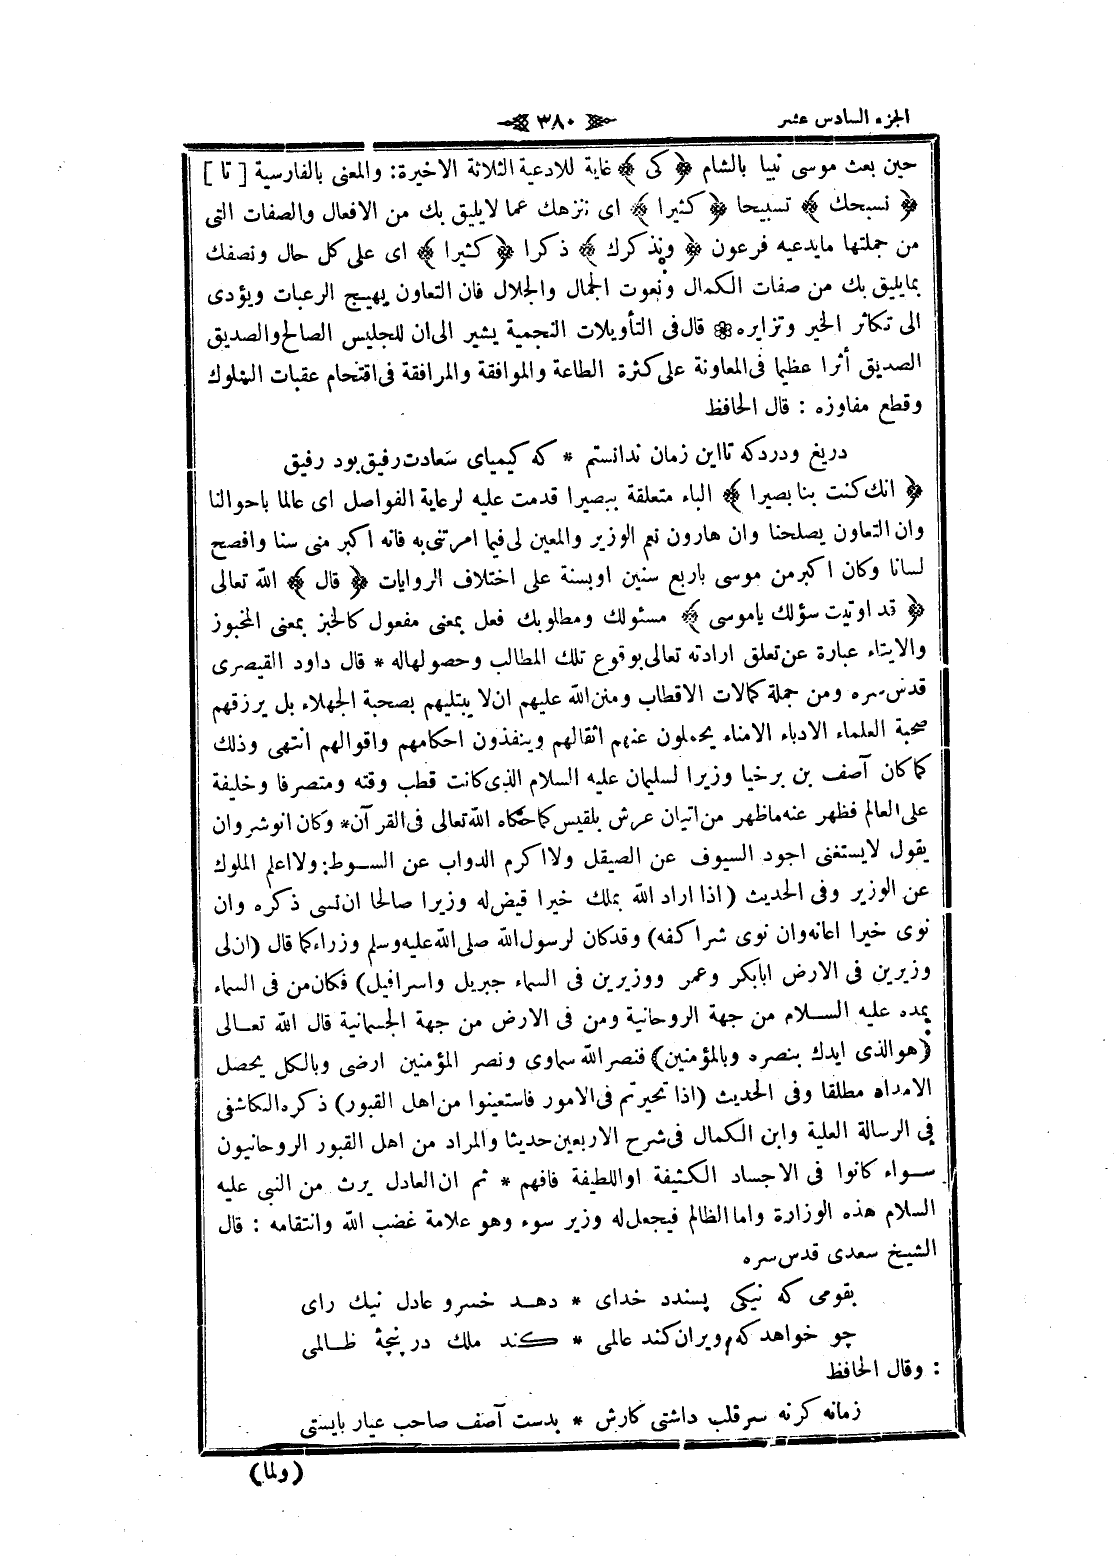 الجزء السادس عشر
٣٨٠
حين بعث موسى نبيا بالشام ﴿ كى ﴾ غاية للادعية الثلاثة الاخيرة: والمعنى بالفارسية [ تا ]
﴿ نسبحك ﴾ تسبيحا ﴿ كثيرا ﴾ اى ننزهك عما لايليق بك من الافعال والصفات التى
من جملتها مايدعيه فرعون ﴿ ونذكرك ﴾ ذكرا ﴿ كثيرا ﴾ اى على كل حال ونصفك
بمايليق بك من صفات الكمال ونعوت الجمال والجلال فان التعاون يهيج الرغبات ويؤدى
الى تكاثر الخير وتزايره ❁ قال فى التأويلات النجمية يشير الى ان للجليس الصالح والصديق
الصديق أثرا عظيما فى المعاونة على كثرة الطاعة والموافقة والمرافقة فى اقتحام عقبات السلوك
وقطع مفاوزه : قال الحافظ
دريغ ودرد كه تا اين زمان ندانستم * كه كيمياى سعادت رفيق بود رفيق
﴿ انك كنت بنا بصيرا ﴾ الباء متعلقة ببصيرا قدمت عليه لرعاية الفواصل اى عالما باحوالنا
وان التعاون يصلحنا وان هارون نعم الوزير والمعين لى فيما امرتنى به فانه اكبر منى سنا وافصح
لسانا وكان اكبر من موسى باربع سنين اوبسنة على اختلاف الروايات ﴿ قال ﴾ الله تعالى
﴿ قد اوتيت سؤلك ياموسى ﴾ مسئولك ومطلوبك فعل بمعنى مفعول كالخبز بمعنى المخبوز
والايتاء عبارة عن تعلق ارادته تعالى بوقوع تلك المطالب وحصولهاله * قال داود القيصرى
قدس سره ومن جملة كمالات الاقطاب ومنن الله عليهم ان لا يبتليهم بصحبة الجهلاء بل يرزقهم
صحبة العلماء الادباء الامناء يحملون عنهم اثقالهم وينفذون احكامهم واقوالهم انتهى وذلك
كما كان آصف بن برخيا وزيرا لسليمان عليه السلام الذى كانت قطب وقته ومتصرفا وخليفة
على العالم فظهر عنه ماظهر من اتيان عرش بلقيس كما حكاه الله تعالى فى القرآن * وكان انوشروان
يقول لايستغنى اجود السيوف عن الصيقل ولا اكرم الدواب عن السـوط: ولا اعلم الملوك
عن الوزير وفى الحديث (اذا اراد الله بملك خيرا قيض له وزيرا صالحا ان نسى ذكره وان
نوى خيرا اعانه وان نوى شرا كفه) وقد كان لرسول الله صلى الله عليه وسلم وزراء كما قال (ان لى
وزيرين فى الارض ابابكر وعمر ووزيرين فى السماء جبريل واسرافيل) فكان من فى السماء
يمده عليه الســلام من جهة الروحانية ومن فى الارض من جهة الجسمانية قال الله تعـالى
(هو الذى ايدك بنصره وبالمؤمنين) فنصر الله سماوى ونصر المؤمنين ارضى وبالكل يحصل
الامداد مطلقا وفى الحديث (اذا تحيرتم فى الامور فاستعينوا من اهل القبور) ذكره الكاشفى
فى الرسالة العلية وابن الكمال فى شرح الاربعين حديثا والمراد من اهل القبور الروحانيون
ســواء كانوا فى الاجساد الكثيفة او اللطيفة فافهم * ثم ان العادل يرث من النبى عليه
السلام هذه الوزارة واما الظالم فيجعل له وزير سوء وهو علامة غضب الله وانتقامه : قال
الشيخ سعدى قدس سره
بقومى كه نيكى پسندد خداى * دهــد خسرو عادل نيك راى
چو خواهد كه ويران كند عالمى * كـند ملك در پنجۀ ظـالمى
: وقال الحافظ
زمانه كرنه سر قلب داشتى كارش * بدست آصف صاحب عيار بايستى
(ولما)